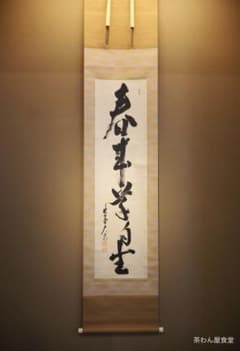 春来草自生
茶わん屋食堂